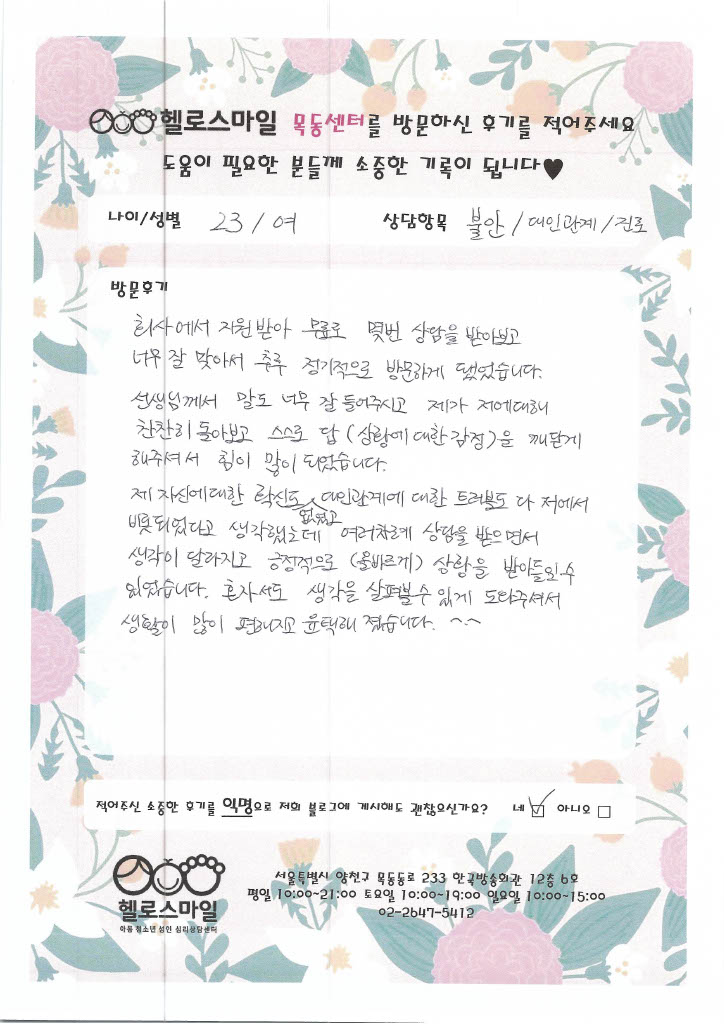 헬로스마일 목동센터를 방문하신 후기를 적어주세요
도움이 필요한 분들께 소중한 기록이 됩니다♥
나이/성별 23 / 여 상담항목 불안 / 대인관계 / 진로
방문후기
회사에서 지원받아 무료로 몇번 상담을 받아보고
너무 잘 맞아서 추후 정기적으로 방문하게 됐었습니다.
선생님께서 말도 너무 잘 들어주시고 제가 저에대해
찬찬히 돌아보고 스스로 답 (상황에 대한 감정)을 깨닫게
해주셔서 힘이 많이 되었습니다.
제 자신에대한 확신도 없었고 대인관계에 대한 트러블도 다 저에서
비롯되었다고 생각했는데 여러차례 상담을 받으면서
생각이 달라지고 긍정적으로 (올바르게) 상황을 받아들일수
있었습니다. 혼자서도 생각을 살펴볼수 있게 도와주셔서
생활이 많이 편해지고 윤택해 졌습니다. ^.^
적어주신 소중한 후기를 익명으로 저희 블로그에 게시해도 괜찮으신가요? 네 ☑ 아니오 □
헬로스마일
아동 청소년 성인 심리상담센터
서울특별시 양천구 목동동로 233 한국방송회관 12층 6호
평일 10:00~21:00 토요일 10:00~19:00 일요일 10:00~15:00
02-2647-5412